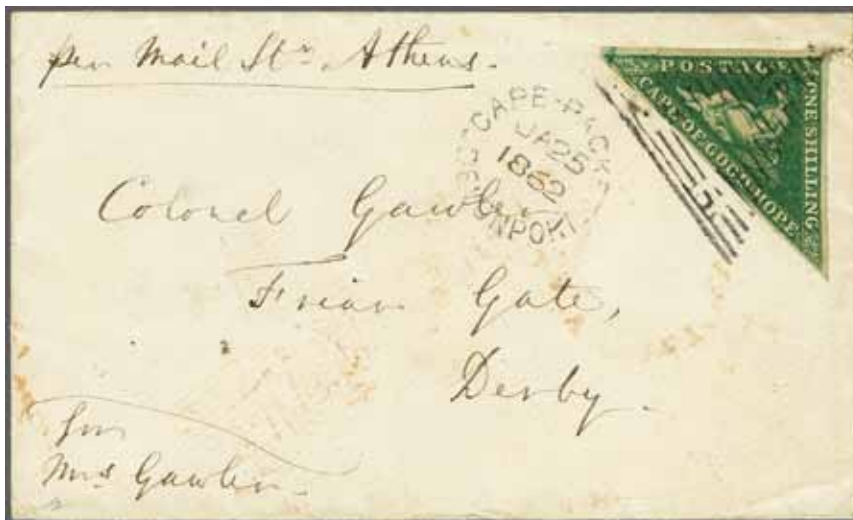 per Mail Str. Athens.
POSTAGE
CAPE OF GOOD HOPE
ONE SHILLING
CAPE-PACKET
JA 25
1862
DEVONPORT
Colonel Gawler
Friar Gate,
Derby.
for
Mrs Gawler.